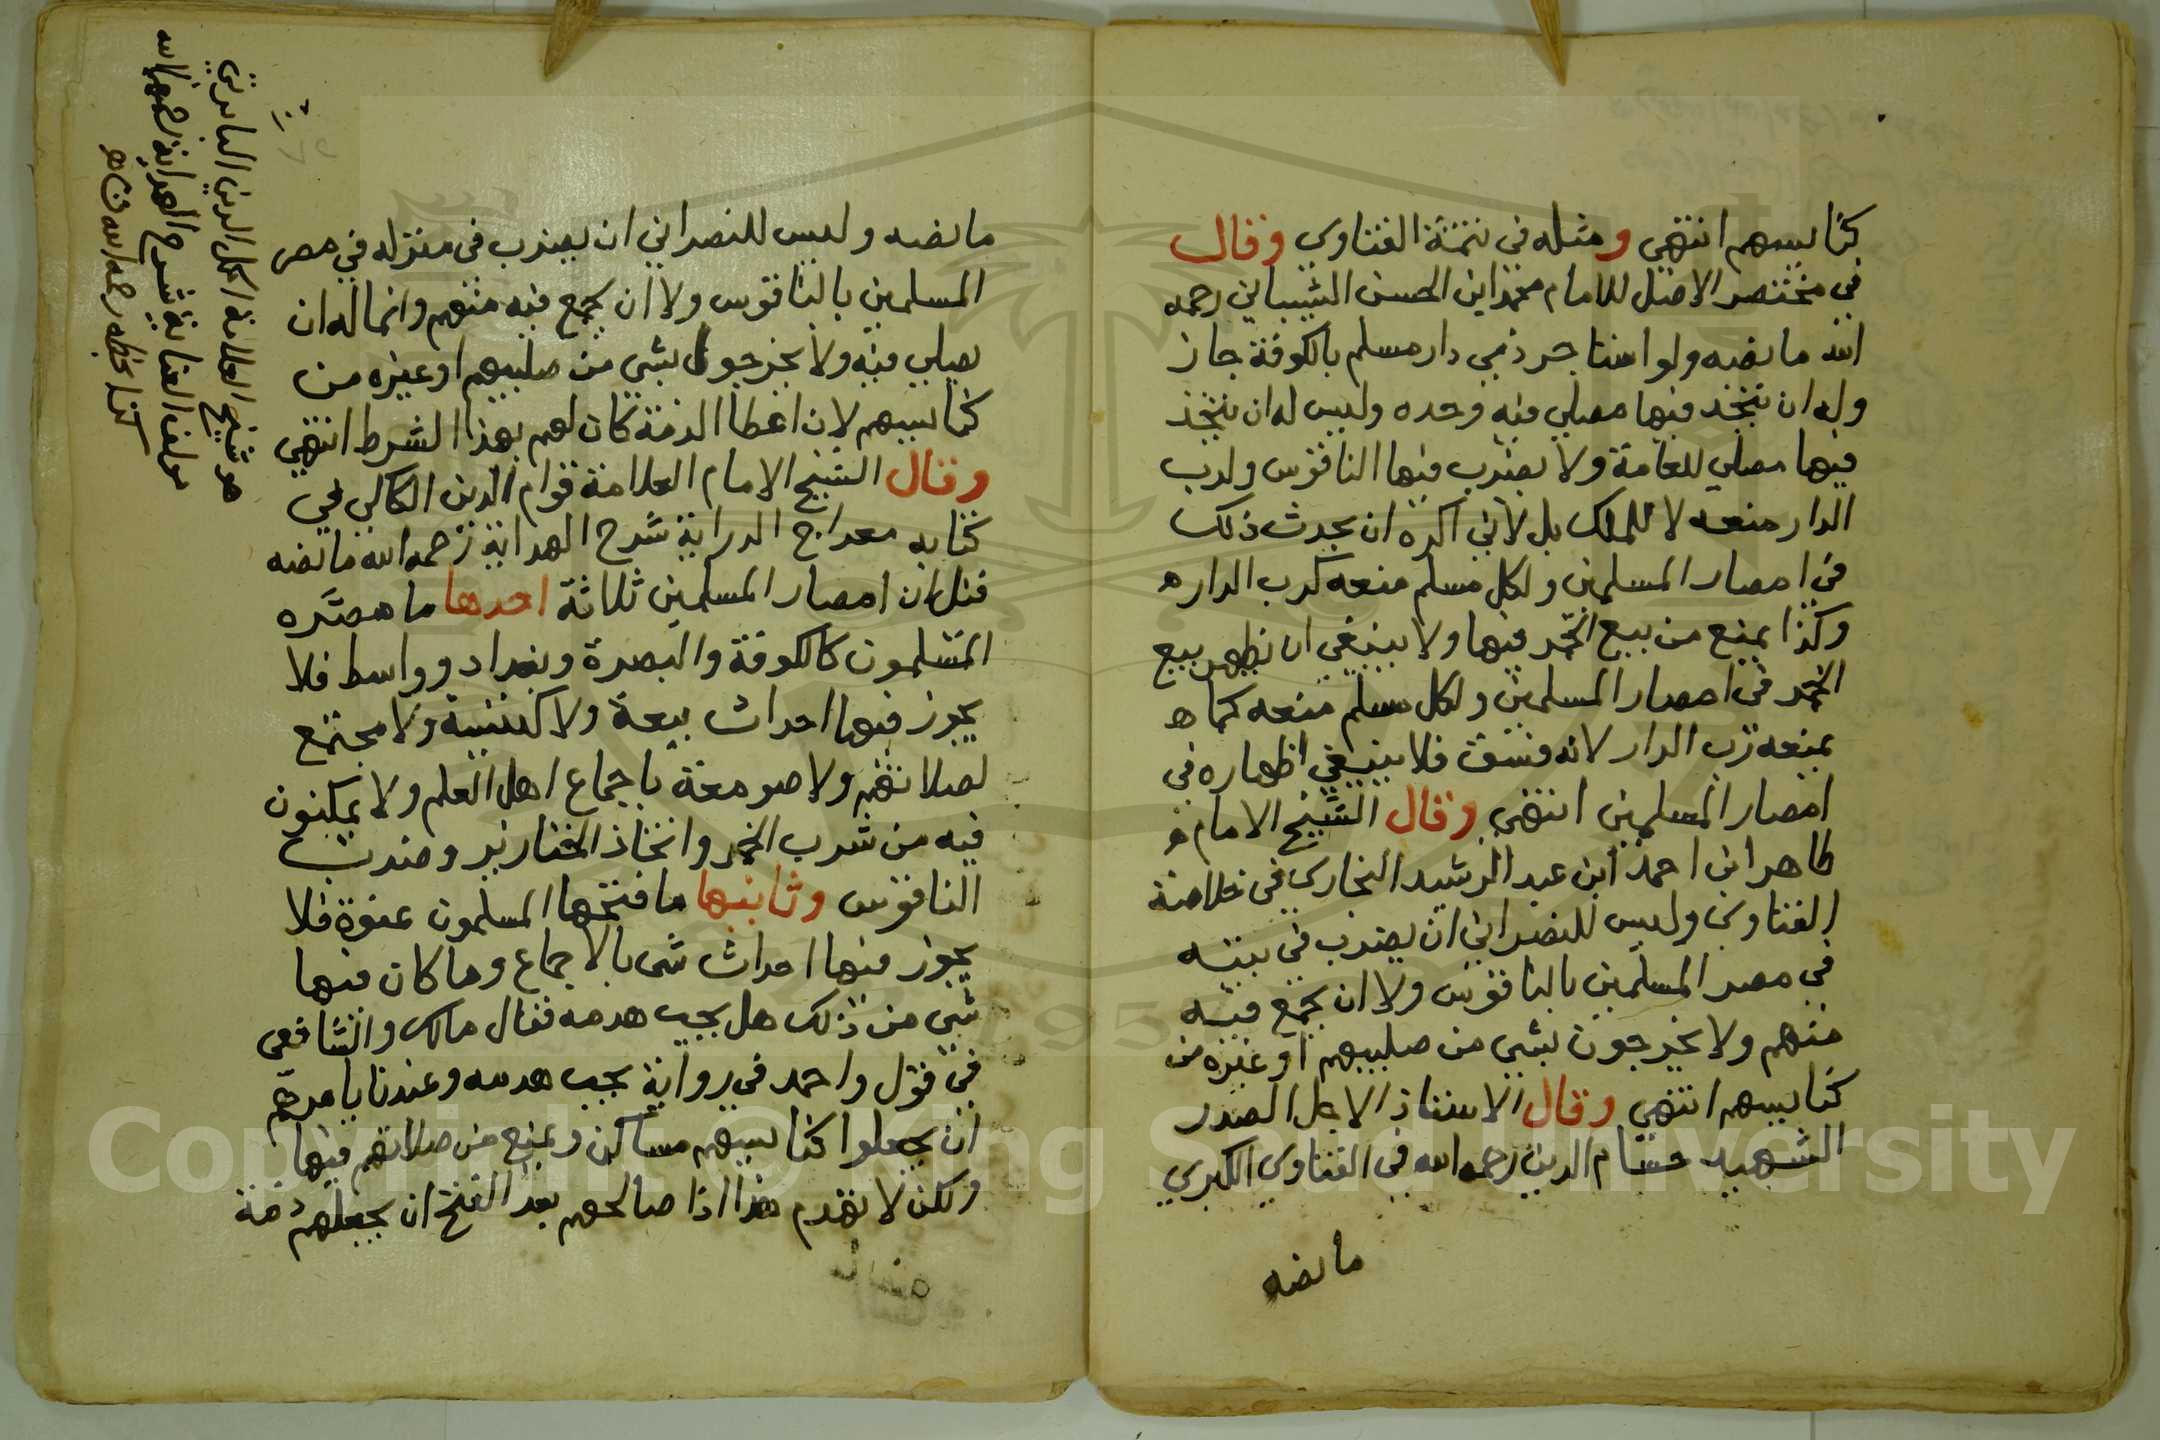 كنايسهم انتهي ومثله في تتمة الفتاوي وقال
في مختصر الاصل للامام محمد ابن الحسن الشيباني رحمه
الله ما نصه ولو استاجر ذمي دار مسلم بالكوفة جاز
وله ان يتخذ فيها مصلي فيه وحده وليس له ان يتخذ
فيها مصلي للعامة ولا يضرب فيها الناقوس ولرب
الدار منعه لا للملك بل لاني اكره ان يحدث ذلك
في امصار المسلمين ولكل مسلم منعه كرب الدار ه
وكذا يمنع من بيع الخمر فيها ولا ينبغي ان يظهر بيع
الخمر في امصار المسلمين ولكل مسلم منعه كما ه
يمنعه رب الدار لانه فسق فلا ينبغي اظهاره في
امصار المسلمين انتهي وقال الشيخ الامام
طاهر ابن احمد ابن عبد الرشيد البخاري في خلاصة
الفتاوي وليس للنصراني ان يضرب في بيته
في مصر المسلمين بالناقوس ولا ان يجمع فيه
منهم ولا يخرجون بشي من صليبهم او غيره من
كنايسهم انتهي وقال الاستاذ الاجل الصدر
الشهيد حسام الدين رحمه الله في الفتاوي الكبري
ما نصه
ما نصه وليس للنصراني ان يضرب في منزله في مصر
المسلمين بالناقوس ولا ان يجمع فيه منهم وانما له ان
يصلي فيه ولا يخرجوا بشي من صليبهم او غيره من
كنايسهم لان اعطا الذمة كان لهم بهذا الشرط انتهي
وقال الشيخ الامام العلامة قوام الدين الكاكي في
كتابه معراج الدراية شرح الهداية رحمه الله ما نصه
قيل ان امصار المسلمين ثلاثة احدها ما مصره
المسلمون كالكوفة والبصرة وبغداد وواسط فلا
يجوز فيها احداث بيعة ولا كنيسة ولا مجتمع
لصلاتهم ولا صومعة باجماع اهل العلم ولا يمكنون
فيه من شرب الخمر واتخاذ الخنازير وضرب
الناقوس وثانيها ما فتحها المسلمون عنوة فلا
يجوز فيها احداث شي بالاجماع وما كان فيها
شي من ذلك هل يجب هدمه فقال مالك والشافعي
في قول واحمد في رواية يجب هدمه وعندنا يامرهم
ان يجعلوا كنايسهم مساكن ويمنع من صلاتهم فيها
ولكن لا تهدم هذا اذا صالحهم بعد الفتح ان يجعلهم ذمة
هو شيخ العلامة اكمل الدين البابرتي
مولف العناية شرح الهداية رحمهما الله
كذا بخطه رحمه الله
Copyright © King Saud University